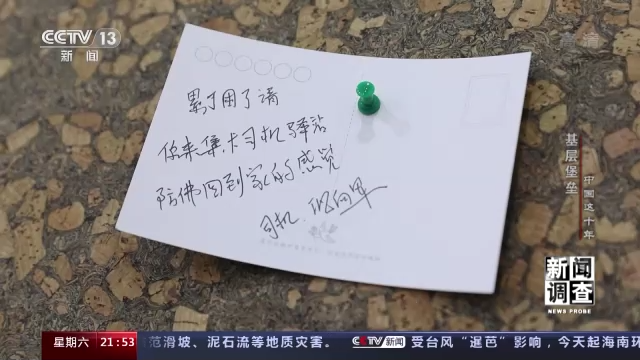 CCTV 13
新闻
累了困了请
你来集卡司机驿站
防佛回到家的感觉
司机
基层堡垒
中国这十年
新闻
调查
NEWS PROBE
星期六 21:53 范滑坡、泥石流等地质灾害。 CCTV新闻 受台风“暹芭”影响，今天起海南环